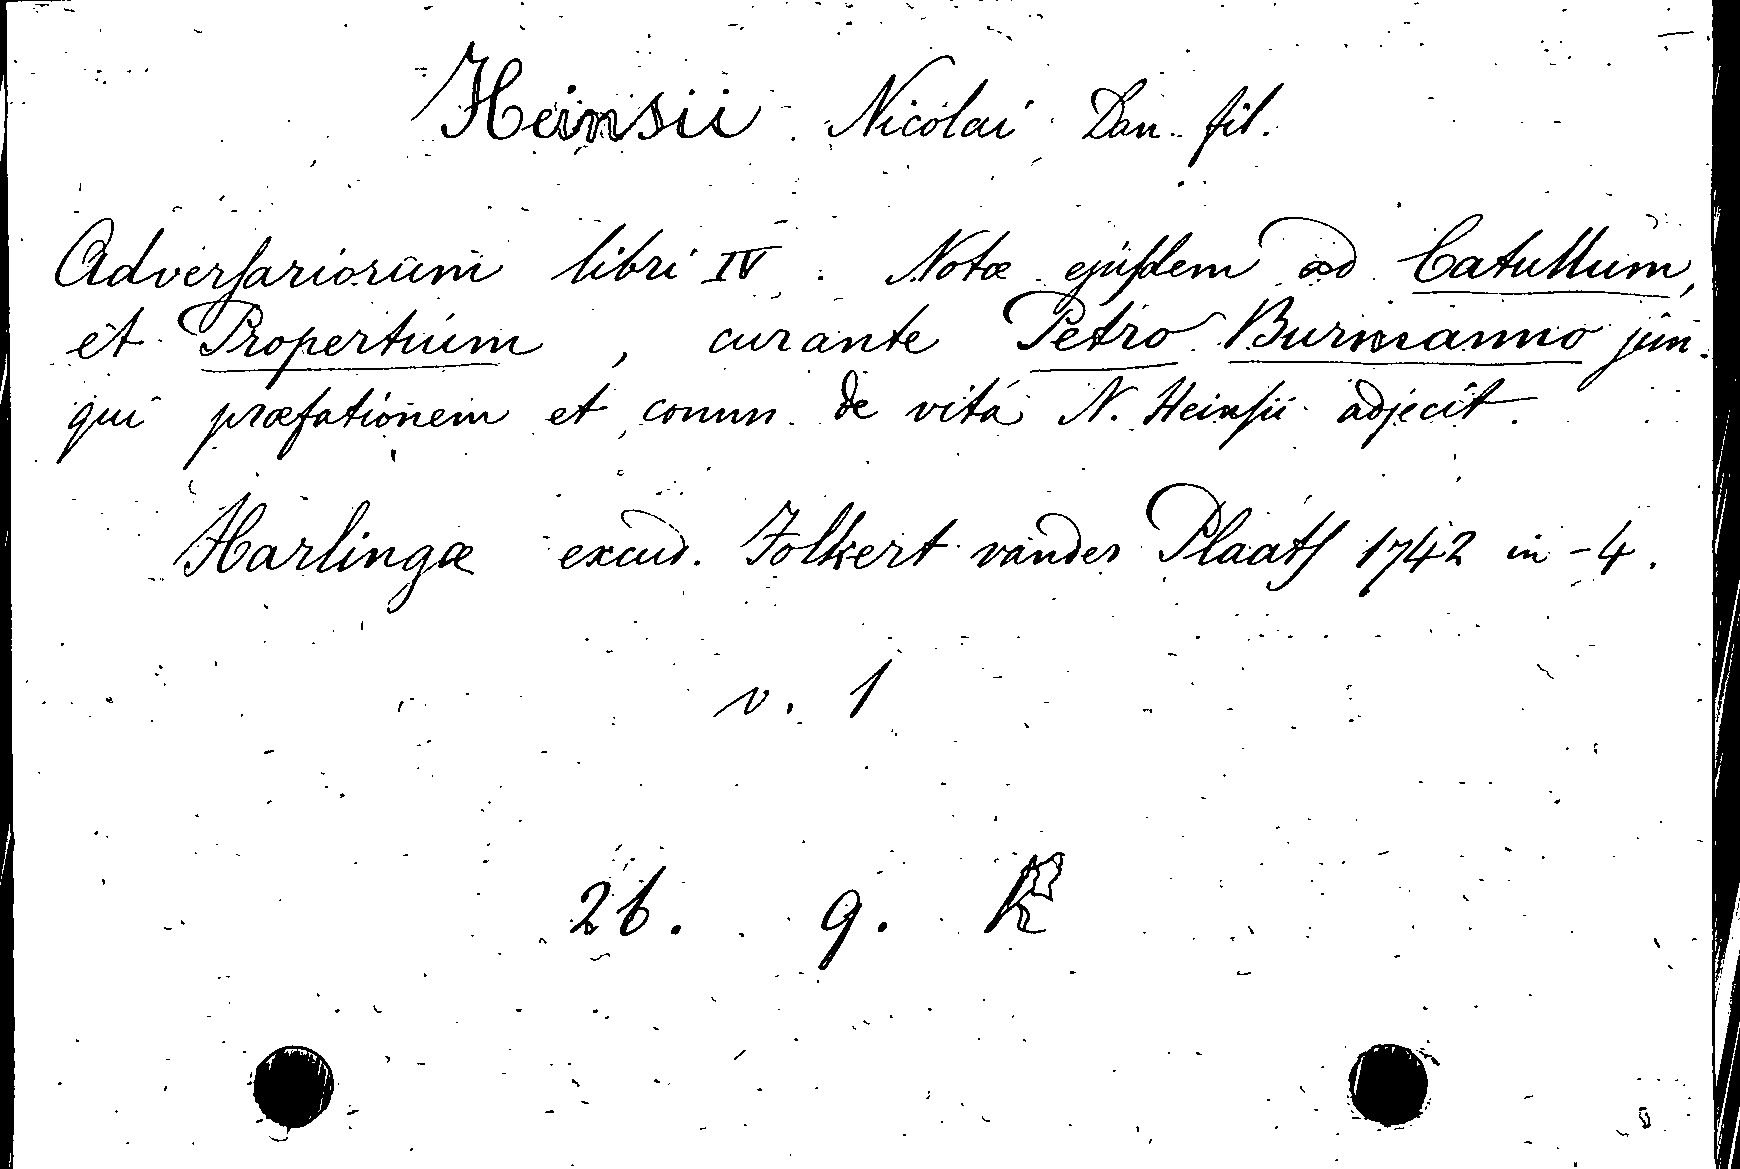 Heinsii Nicolai Dan. fil.
Adverſariorum libri IV. Notæ ejuſdem ad Catullum,
et Propertium, curante Petro Burmanno jun.
qui præfationem et comm. de vita N. Heinſii adjecit.
Harlingæ excud. Folkert vander Plaatſ 1742 in-4.
v. 1
26. 9. K